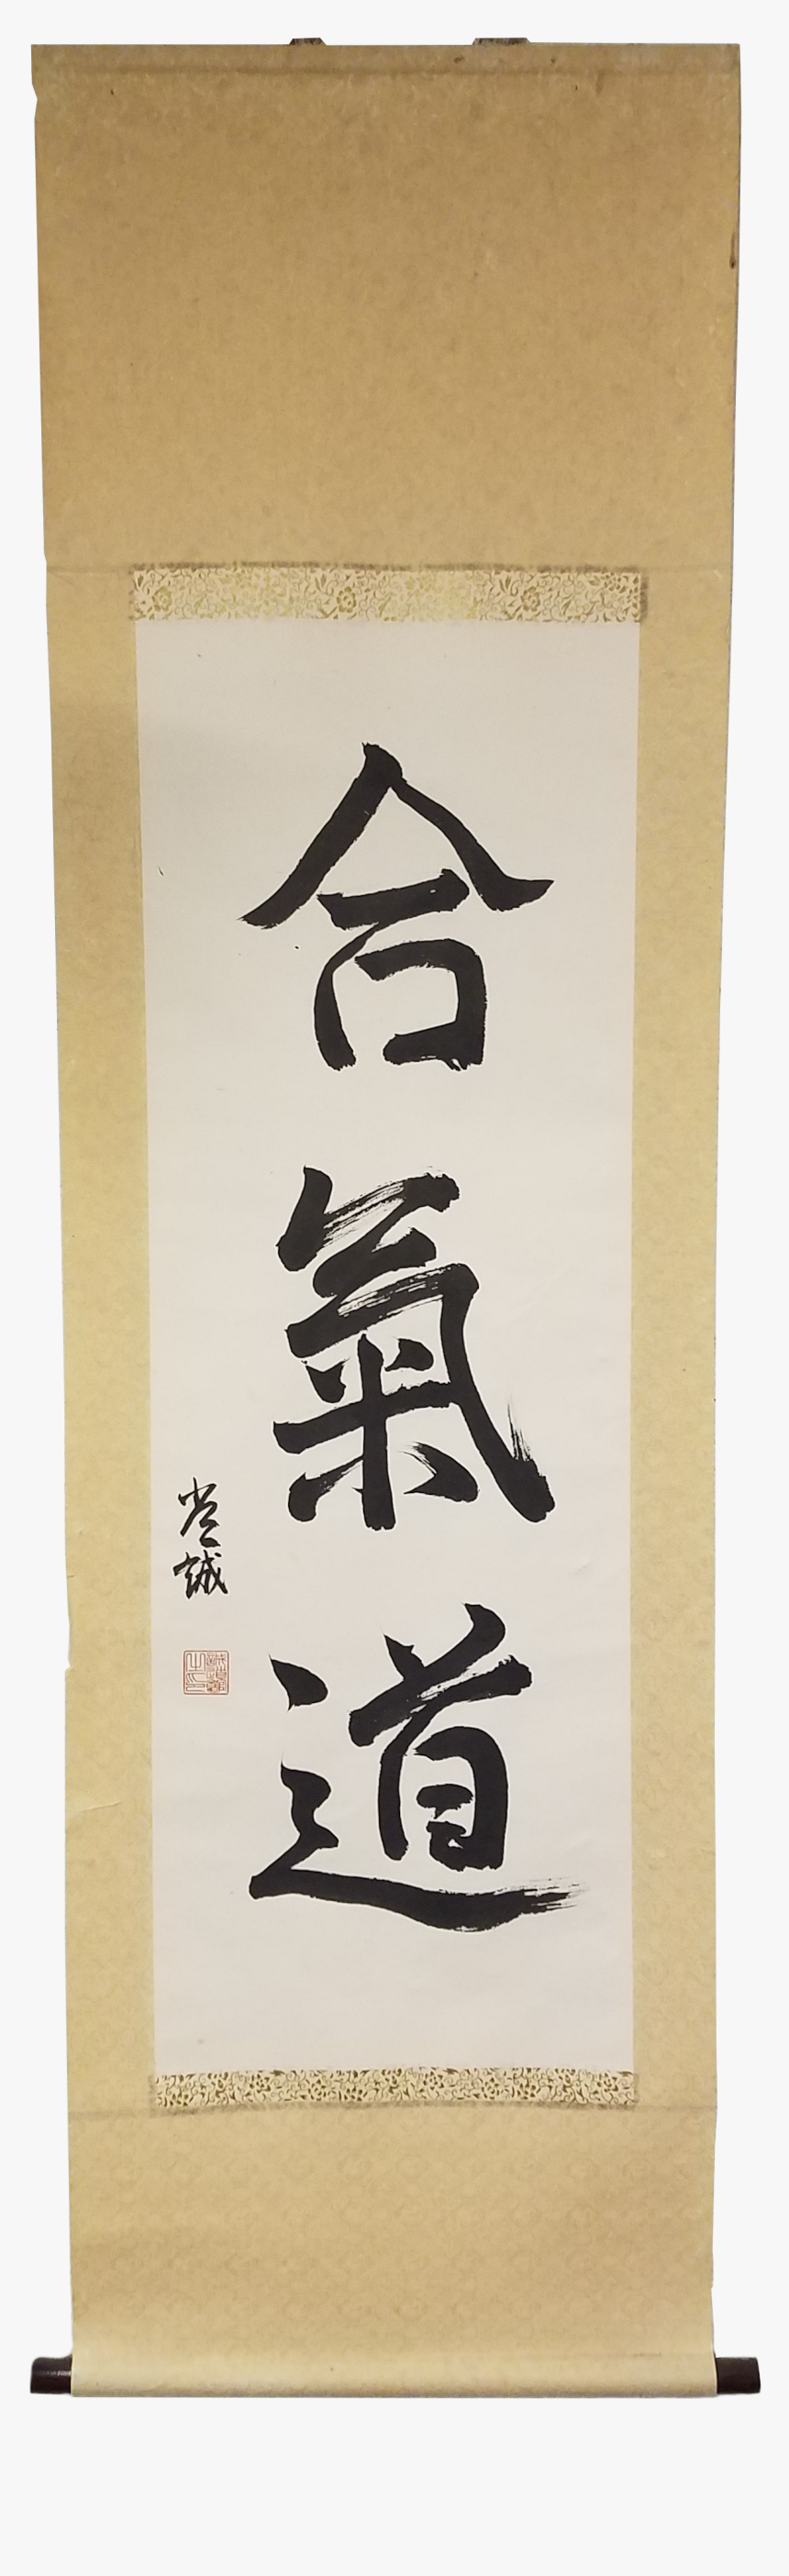 合氣道
誠